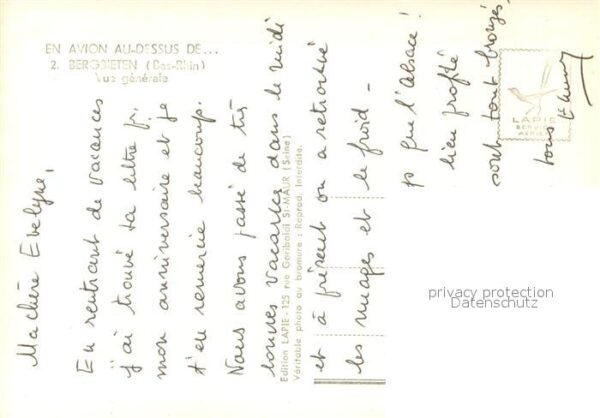 EN AVION AU-DESSUS DE...
2. BERGBIETEN (Bas-Rhin)
Vue générale
Ma chère Evelyne,
En rentrant de vacances
j'ai trouvé ta lettre pr.
mon anniversaire et je
t'en remercie beaucoup.
Nous avons passé de très
bonnes vacances dans le midi
et à présent on a retrouvé
les nuages et le froid -
que l'Alsace!
bien profité
sont tout bronzés,
tous
Edition LAPIE - 125 rue Garibaldi ST-MAUR (Seine)
Véritable photo au bromure : Reprod. Interdite.
LAPIE
SERVICE
AERIEN
privacy protection
Datenschutz